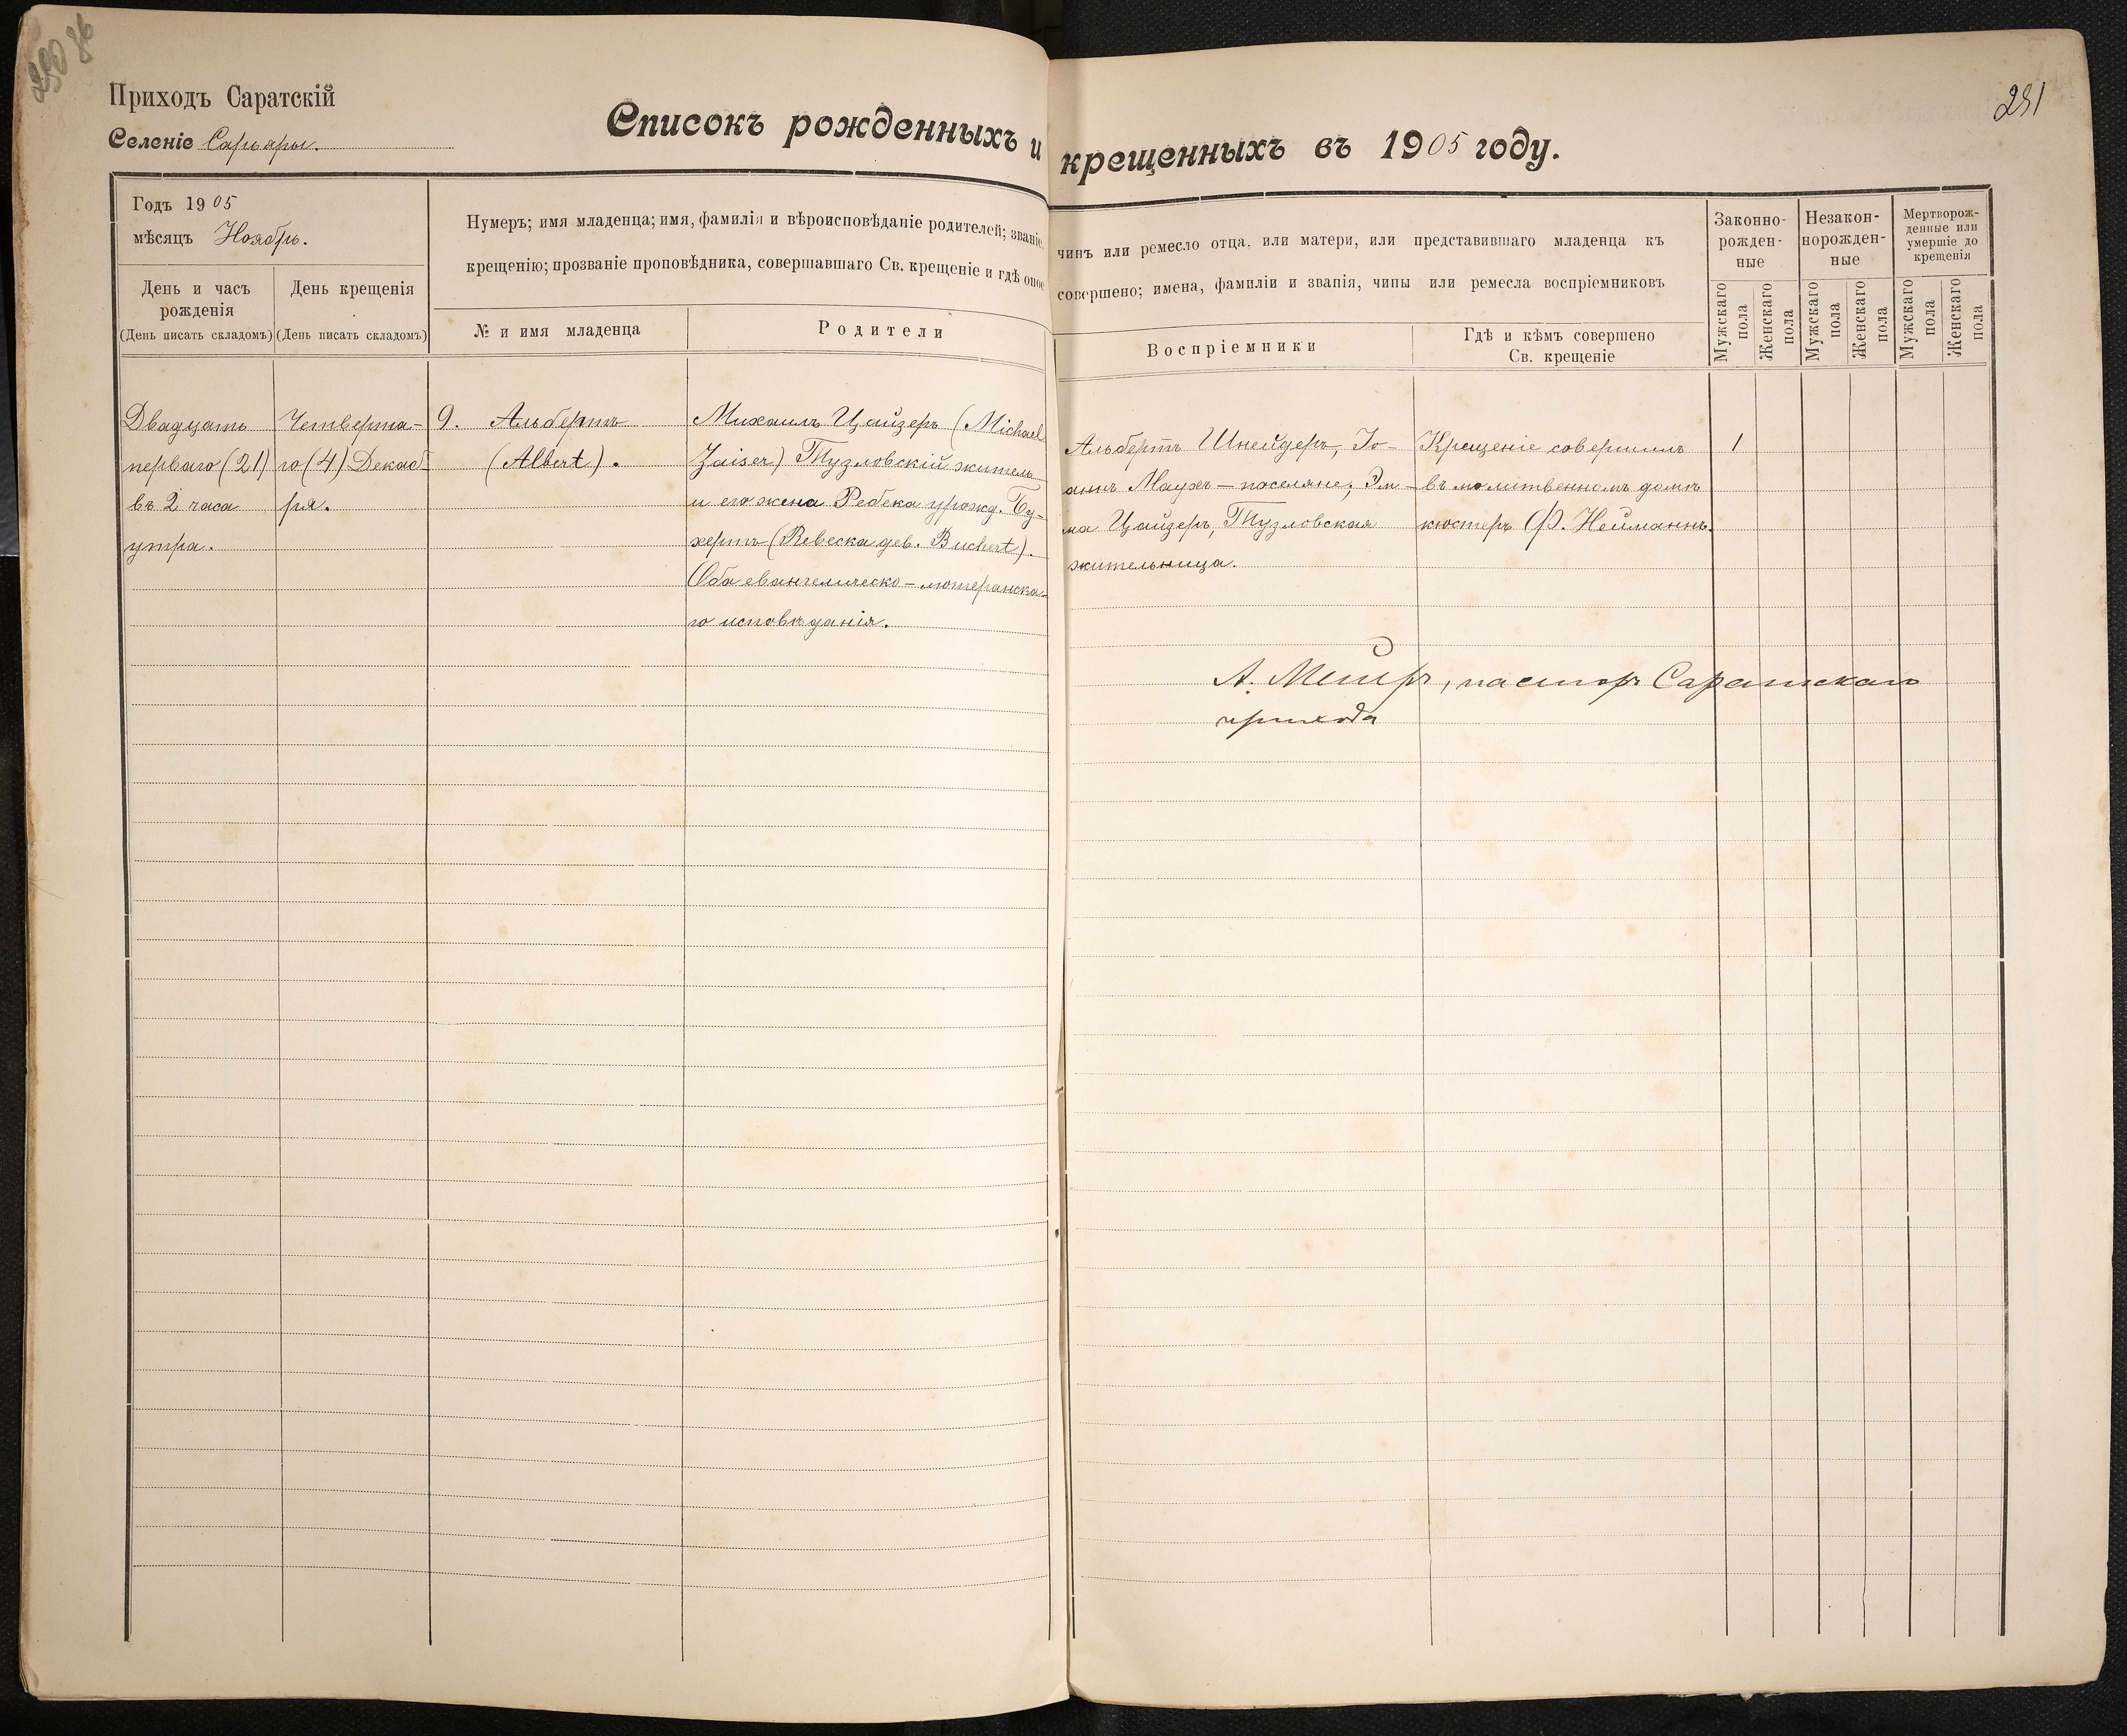 291
Приходъ Саратскій
Селеніе Сарьяры.
Списокъ рожденныхъ и крещенныхъ въ 1905 году.
Годъ 1905
мѣсяцъ Ноябрь.
День и часъ
рожденія
(День писать складомъ)
День крещенія
(День писать складомъ)
Нумеръ; имя младенца; имя, фамилія и вѣроисповѣданіе родителей; званіе,
чинъ или ремесло отца, или матери, или представившаго младенца къ
крещенію; прозваніе проповѣдника, совершавшаго Св. крещеніе и гдѣ оное
совершено; имена, фамиліи и званія, чины или ремесла воспріемниковъ
№ и имя младенца
Родители
Воспріемники
Гдѣ и кѣмъ совершено
Св. крещеніе
Законно-
рожден-
ные
Незакон-
норожден-
ные
Мертворож-
денные или
умершіе до
крещенія
Мужскаго
пола
Женскаго
пола
Мужскаго
пола
Женскаго
пола
Мужскаго
пола
Женскаго
пола
Двадцать
перваго (21)
въ 2 часа
утра.
Четверта-
го (4) Декаб-
ря.
9. Альбертъ
(Albert).
Михаилъ Цайзеръ (Michael
Zaiser) Тузловскій житель
и его жена Ребека урожд. Бу-
хертъ (Rebecka geb. Buchert).
Оба евангелическо-лютеранска-
го исповѣданія.
Альбертъ Шнейдеръ, Іо-
аннъ Маухъ — поселяне; Эм-
ма Цайзеръ, Тузловская
жительница.
Крещеніе совершилъ
въ молитвенномъ домѣ
кюстеръ Ф. Нейманнъ.
1
А. Мейеръ, пасторъ Саратскаго
прихода